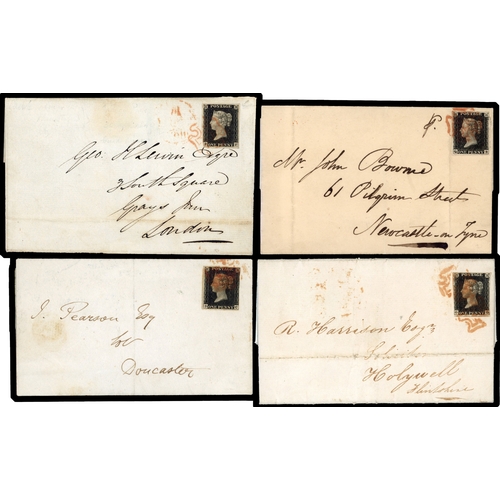 POSTAGE
ONE PENNY
Geo. H Lewin Esqre
3 South Square
Grays Inn
London
POSTAGE
ONE PENNY
Mr. John Bowne
61 Pilgrim Street
Newcastle-on Tyne
POSTAGE
ONE PENNY
J. Pearson Esq
Doncaster
POSTAGE
ONE PENNY
R. Harrison Esqr
Solicitor
Holywell
Flintshire